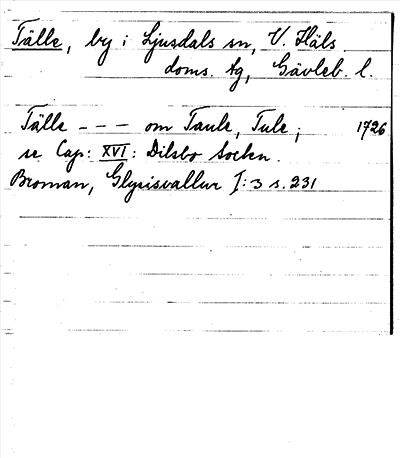 Tälle, by i Ljusdals sn, V. Häls
doms. tg, Gävleb. l.
Tälle - - - om Taule, Tule, 1726
se Cap: XVI: Dilsbo Socken.
Broman, Glysisvallur I: 3 s. 231